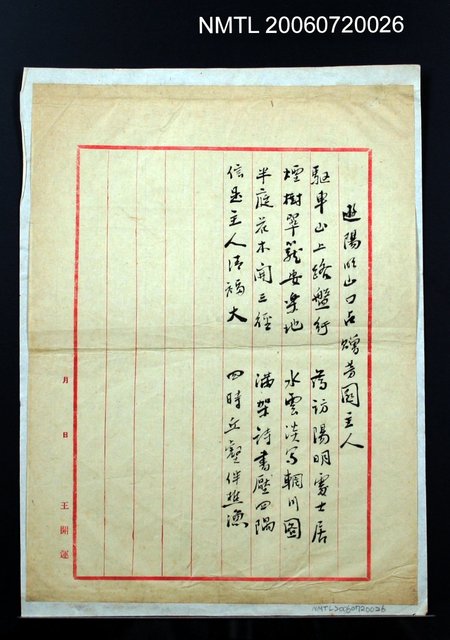 NMTL 20060720026
遊陽明山口占贈芳園主人
驅車山上路盤行 為訪陽明處士居
煙樹翠籠安樂地 水雲淡寫輞川圖
半庭花木開三徑 滿架詩書壓四隅
信是主人清福大 四時丘壑伴樵漁
月 日 王開運
NMTL20060720026